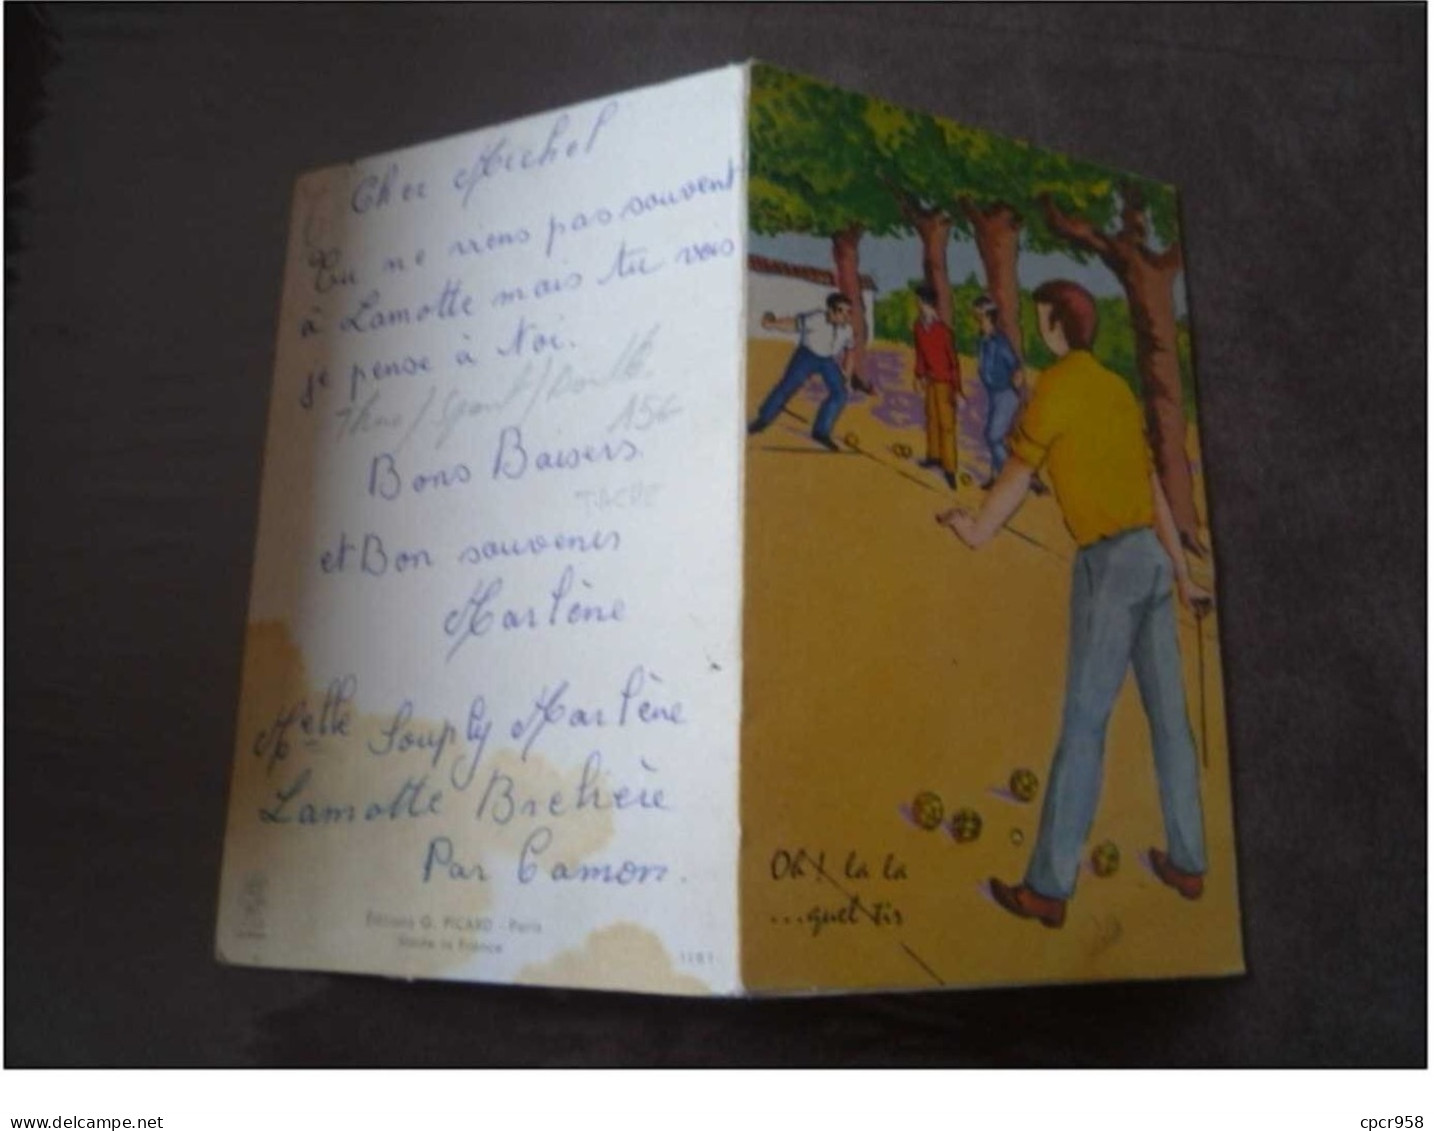 Cher Michel
Tu ne viens pas souvent
à Lamotte mais tu vois
je pense à toi.
Sport
15€
Bons Baisers
TACHE
et Bon souvenir
Marlène
Melle Souply Marlène
Lamotte Brebière
Par Camon.
Editions G. PICARD - Paris
Made in France
1181
Oh! la la
...quel tir
www.delcampe.net
cpcr958